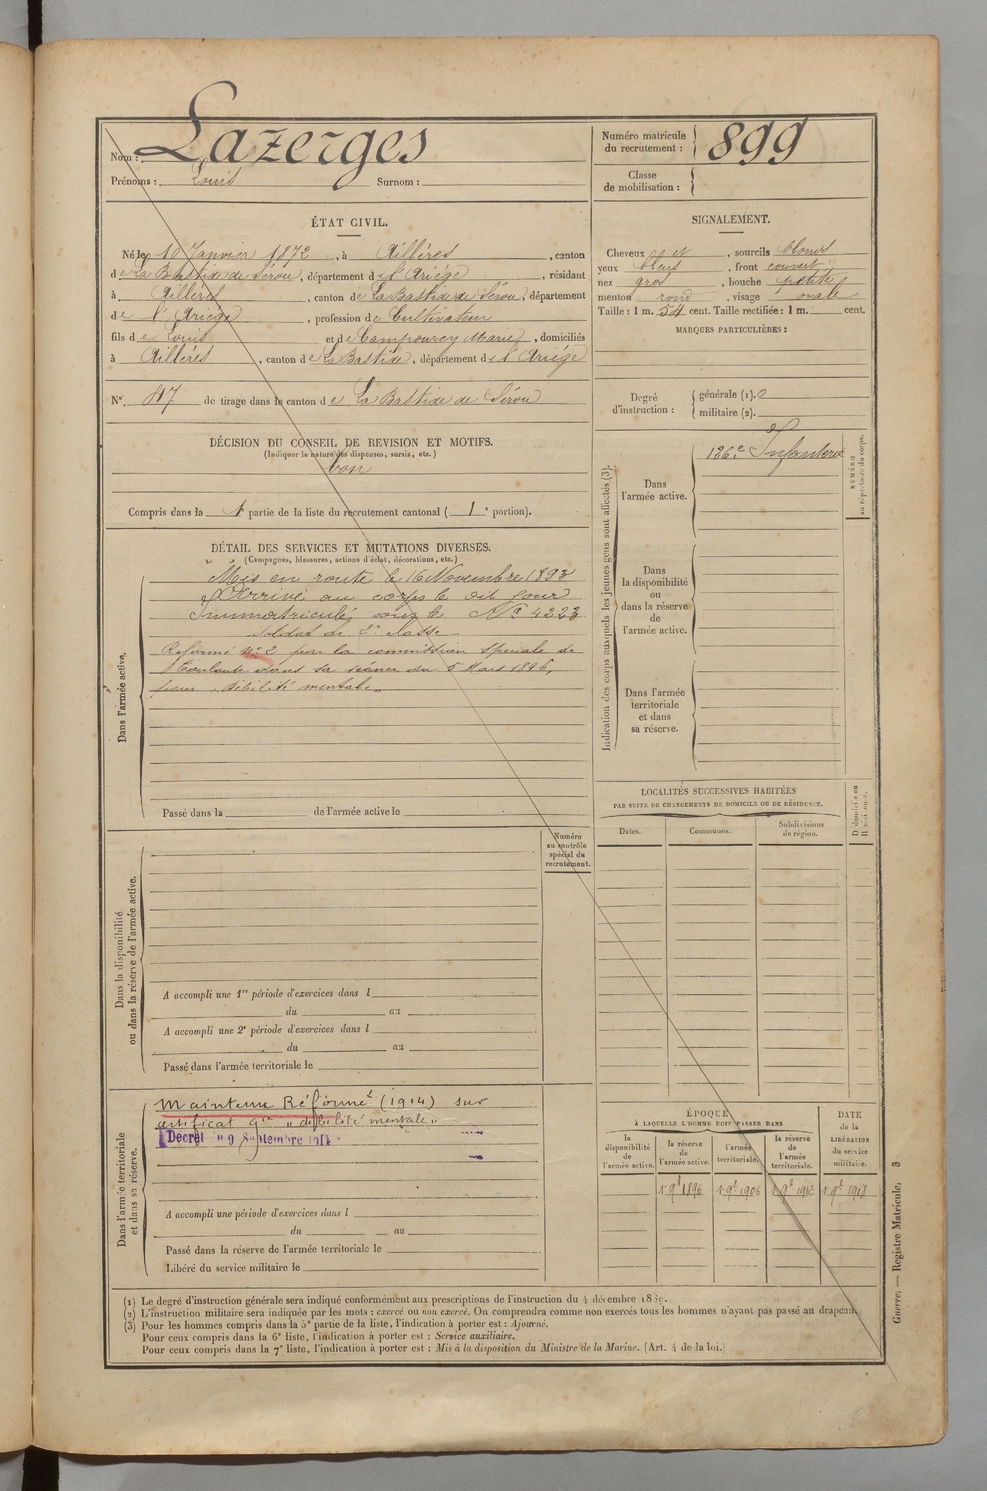 Nom : Lazerges
Prénoms : Louis Surnom :
Numéro matricule
du recrutement : 899
Classe
de mobilisation :
ÉTAT CIVIL.
Né le 10 Janvier 1872, à Aillères, canton
de La Bastide de Sérou, département de l'Ariége, résidant
à Aillères, canton de La Bastide de Sérou, département
de l'Ariége, profession de Cultivateur
fils de Louis et de Campourcy Marie, domiciliés
à Aillérés, canton de La Bastide, département de l'Ariége
N° 87 de tirage dans le canton de La Bastide de Sérou
DÉCISION DU CONSEIL DE REVISION ET MOTIFS.
(Indiquer la nature des dispenses, sursis, etc.)
bon
Compris dans la 1 partie de la liste du recrutement cantonal ( 1e portion).
DÉTAIL DES SERVICES ET MUTATIONS DIVERSES.
(Campagnes, blessures, actions d'éclat, décorations, etc.)
Dans l'armée active.
Mis en route le 16 Novembre 1893
Arrivé au corps le dit jour
Immatriculé sous le N° 4223
soldat de 2e classe
Réformé N° 2 par la commission spéciale de
dans sa séance du 5 Mars 1896,
pour "débilité mentale"
Passé dans la de l'armée active le
Dans la disponibilité
ou dans la réserve de l'armée active.
Numéro
au contrôle
spécial du
recrutement.
A accompli une 1re période d'exercices dans l
du au
A accompli une 2e période d'exercices dans l
du au
Passé dans l'armée territoriale le
Dans l'armée territoriale
et dans sa réserve.
Maintenu Réformé (1914) sur
certificat "débilité mentale"
Décret 9 Septembre 1914
A accompli une période d'exercices dans l
du au
Passé dans la réserve de l'armée territoriale le
Libéré du service militaire le
SIGNALEMENT.
Cheveux et, sourcils blonds
yeux bleus, front couvert
nez gros, bouche petite
menton rond, visage ovale
Taille : 1 m. 54 cent. Taille rectifiée : 1 m. cent.
MARQUES PARTICULIÈRES :
Degré
d'instruction :
générale (1). 0
militaire (2).
Indication des corps auxquels les jeunes gens sont affectés (3).
NUMÉRO
au répertoire du corps.
126e d'Infanterie
Dans
l'armée active.
Dans
la disponibilité
ou
dans la réserve
de
l'armée active.
Dans l'armée
territoriale
et dans
sa réserve.
LOCALITÉS SUCCESSIVES HABITÉES
PAR SUITE DE CHANGEMENTS DE DOMICILE OU DE RÉSIDENCE.
Dates. Communes. Subdivisions
de région.
D domicile ou
R résidence.
ÉPOQUE
À LAQUELLE L'HOMME DOIT PASSER DANS
DATE
de la
LIBÉRATION
du service
militaire.
la
disponibilité
de
l'armée active.
la réserve
de
l'armée active.
l'armée
territoriale.
la réserve
de
l'armée
territoriale.
1 9b 1896 1 9b 1906 1 9b 1912 1 9b 1918
(1) Le degré d'instruction générale sera indiqué conformément aux prescriptions de l'instruction du 4 décembre 1889.
(2) L'instruction militaire sera indiquée par les mots : exercé ou non exercé. On comprendra comme non exercés tous les hommes n'ayant pas passé au drapeau.
(3) Pour les hommes compris dans la 5e partie de la liste, l'indication à porter est : Ajourné.
Pour ceux compris dans la 6e liste, l'indication à porter est : Service auxiliaire.
Pour ceux compris dans la 7e liste, l'indication à porter est : Mis à la disposition du Ministre de la Marine. (Art. 4 de la loi.)
Guerre. — Registre Matricule. 3